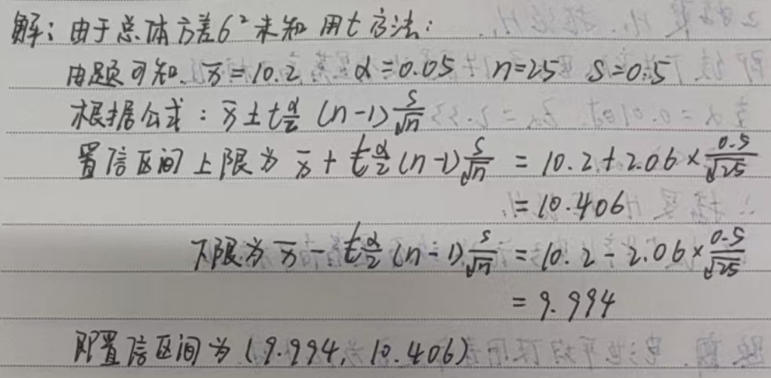 解：由于总体方差σ²未知 用t方法：
由题可知. x̄=10.2 α=0.05 n=25 S=0.5
根据公式：x̄±t_{α/2}(n-1)S/√n
置信区间上限为 x̄+t_{α/2}(n-1)S/√n = 10.2+2.06×0.5/√25
=10.406
下限为 x̄-t_{α/2}(n-1)S/√n = 10.2-2.06×0.5/√25
= 9.994
即置信区间为 (9.994, 10.406)